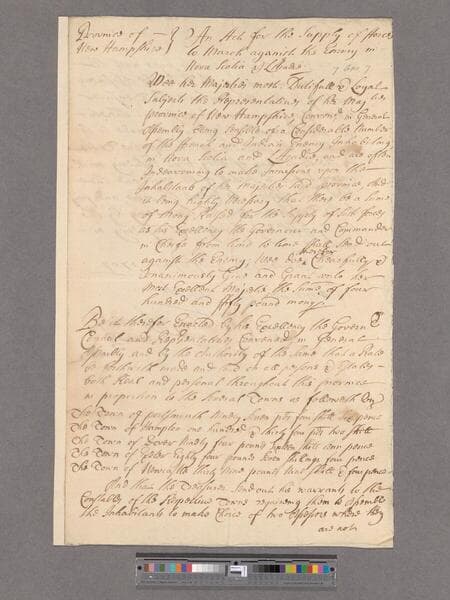 Province of
New Hampshire
An Act for the Supply of forces
to March against the Enemy in
Nova Scotia &
Wee her Majesties most Dutifull & Loyal
Subjects the Representatives of her Majties
province of New Hampshire Conven'd in General
Assembly being sensible of a Considerable number
of the french and Indian Enemy Inhabiting
in Nova Scotia and and are often
Indeavouring to make Incursions upon the
Inhabitants of her Majesties said province and
is being highly necessary that there be a sume
of Mony Raised for the supply of such forces
as his Excellency the Governour and Commander
in Cheife from time to time shall send out
against the Enemy, Wee doe therefore Chearfully &
Unanimously Give and Grant unto her
Most Excellent Majestie the sume of four
hundred and fifty pound mony
Be it therefor Enacted by his Excellency the Governr
Councel and Representatives Convened in General
Assembly and by the Authority of the same that a Rate
be forthwith made and laid on all persons & Estates
both Real and personal throughout this province
in proportion to the Several Towns as followeth
The Town of portsmouth Ninety Seven pds four shill pence
The Town of Hampton one hundred & thirty four pds two shill
The Town of Dover Ninety four pounds shill pence
The Town of Exeter Eighty four pounds Seven shillings four pence
The Town of Newcastle thirty Nine pounds shill & four pence
And that the Treasurer send out his warrants to the
Constables of the Respective Towns requireing them to Assemble
the Inhabitants to make Choice of two Assessors where they
are not